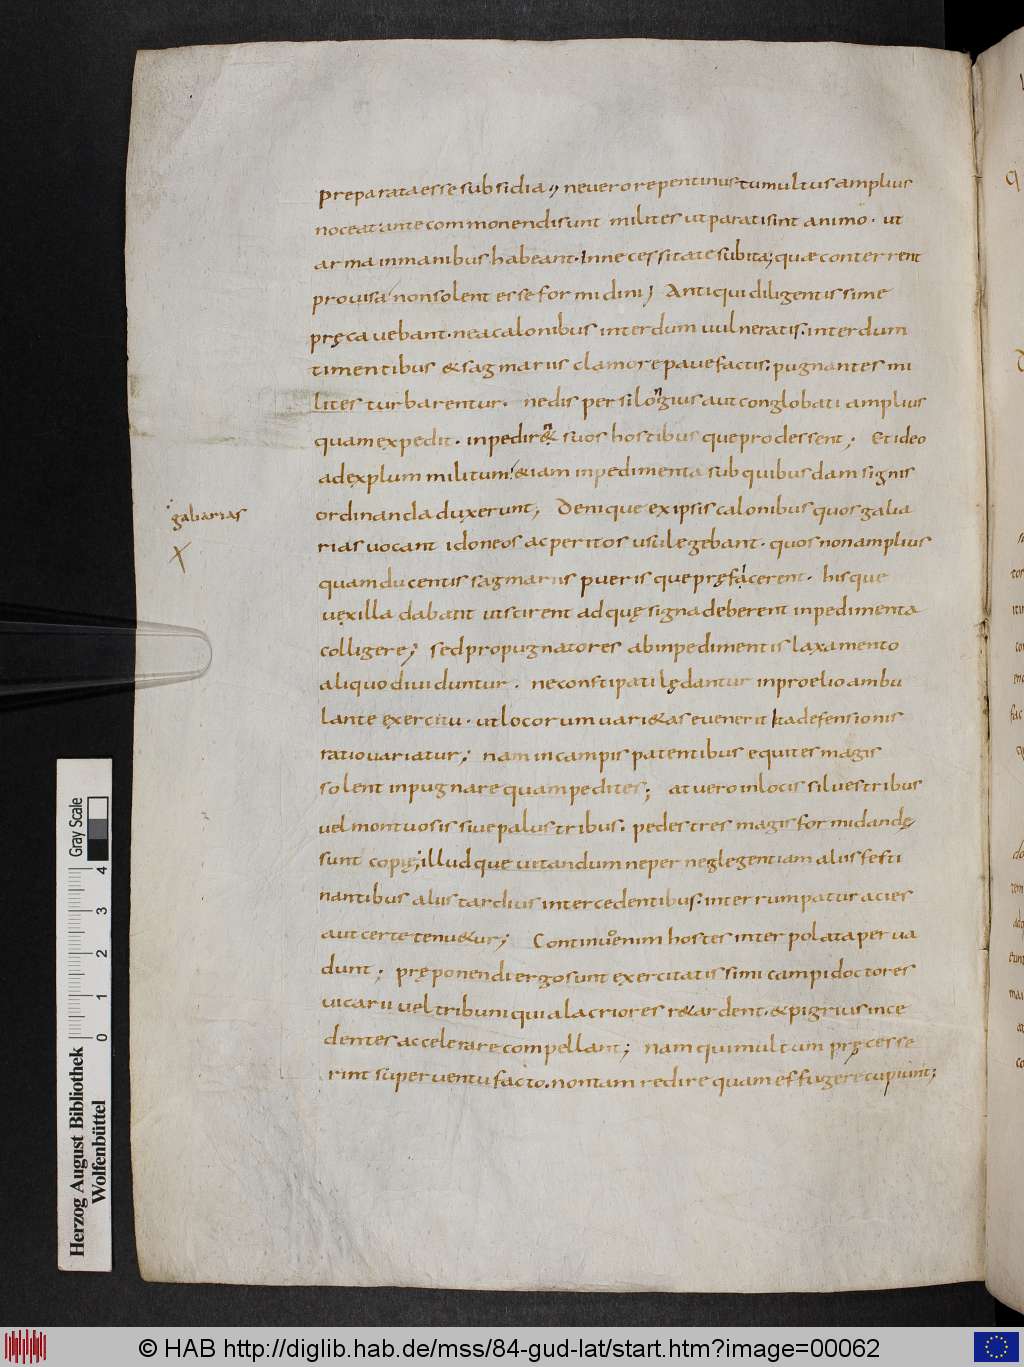 preparata esse subsidia; ne vero repentinus tumultus amplius
noceat. ante commonendi sunt milites ut parati sint animo. ut
arma in manibus habeant. In necessitate subita; quae conterrent
provisa non solent esse formidini; Antiqui diligentissime
pręcavebant. ne a calonibus interdum vulneratis. interdum
timentibus & sagmariis clamore pavefactis. pugnantes mi
lites turbarentur. ne dispersi longius aut conglobati amplius
quam expedit. inpedirent suos hostibusque prodessent; Et ideo
ad exęplum militum &iam inpedimenta sub quibusdam signis
ordinanda duxerunt; Denique ex ipsis calonibus quos galia
rias vocant idoneos ac peritos usu legebant. quos non amplius
quam ducentis sagmariis puerisque pręfacerent. hisque
vexilla dabant ut scirent ad quę signa deberent inpedimenta
colligere; sed propugnatores ab inpedimentis laxamento
aliquo dividuntur. ne constipati lędantur in proelio ambu
lante exercitu. ut locorum vari&as evenerit Ita defensionis
ratio variatur; nam in campis patentibus equites magis
solent inpugnare quam pedites; at vero in locis silvestribus
vel montuosis sive palustribus. pedestres magis formidandę
sunt copię; illudque vitandum ne per neglegentiam aliis festi
nantibus aliis tardius intercedentibus. interrumpatur acies
aut certe tenu&ur; Continuo enim hostes interpolata perva
dunt; pręponendi ergo sunt exercitatissimi campidoctores
vicarii vel tribuni qui alacriores r&ardent. & pigrius ince
dentes accelerare compellant; nam qui multum pręcesse
rint superventu facto. non tam redire quam effugere cupiunt;
galiarias
Gray Scale
0 1 2 3 4
Herzog August Bibliothek
Wolfenbüttel
© HAB http://diglib.hab.de/mss/84-gud-lat/start.htm?image=00062